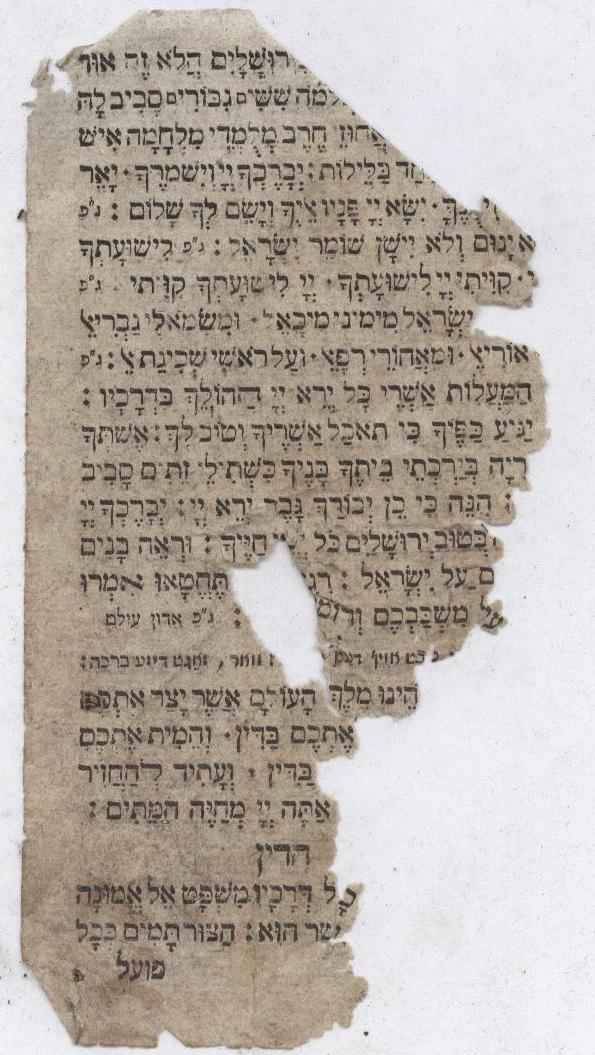 ירוּשָׁלָיִם הֲלֹא זֶה אוּד
שִׁשִּׁים גִּבּוֹרִים סָבִיב לָהּ
אֲחוּזֵי חֶרֶב מְלֻמְּדֵי מִלְחָמָה אִישׁ
בַּלֵּילוֹת : יְבָרֶכְךָ יְיָ וְיִשְׁמְרֶךָ · יָאֵר
יִשָּׂא יְיָ פָּנָיו אֵלֶיךָ וְיָשֵׂם לְךָ שָׁלוֹם : ג"פ
יָנוּם וְלֹא יִישָׁן שׁוֹמֵר יִשְׂרָאֵל : ג"פ לִישׁוּעָתְךָ
קִוִּיתִי יְיָ לִישׁוּעָתְךָ · יְיָ לִישׁוּעָתְךָ קִוִּיתִי · ג"פ
יִשְׂרָאֵל מִימִינִי מִיכָאֵל · וּמִשְּׂמֹאלִי גַבְרִיאֵל
אוּרִיאֵל · וּמֵאֲחוֹרַי רְפָאֵל · וְעַל רֹאשִׁי שְׁכִינַת אֵל : ג"פ
הַמַּעֲלוֹת אַשְׁרֵי כָּל יְרֵא יְיָ הַהוֹלֵךְ בִּדְרָכָיו :
יְגִיעַ כַּפֶּיךָ כִּי תֹאכֵל אַשְׁרֶיךָ וְטוֹב לָךְ : אֶשְׁתְּךָ
רִיָּה בְּיַרְכְּתֵי בֵיתֶךָ בָּנֶיךָ כִּשְׁתִילֵי זֵתִים סָבִיב
: הִנֵּה כִי כֵן יְבוֹרַךְ גָּבֶר יְרֵא יְיָ : יְבָרֶכְךָ יְיָ
בְּטוּב יְרוּשָׁלָיִם כֹּל חַיֶּיךָ : וּרְאֵה בָנִים
עַל יִשְׂרָאֵל : תֶּחֱטָאוּ אִמְרוּ
מִשְׁכַּבְכֶם : ג"פ אדון עולם
ברכה :
הֵינוּ מֶלֶךְ הָעוֹלָם אֲשֶׁר יָצַר אֶתְכֶם
אֶתְכֶם בַּדִּין · וְהֵמִית אֶתְכֶם
בַּדִּין · וְעָתִיד לְהַחֲזִיר
אַתָּה יְיָ מְחַיֵּה הַמֵּתִים :
הדין
דְּרָכָיו מִשְׁפָּט אֵל אֱמוּנָה
הוּא : הַצּוּר תָּמִים בְּכָל
פועל